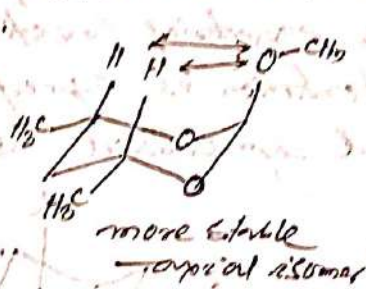 H H O-CH3
H3C O
H3C O
more stable
axial isomer